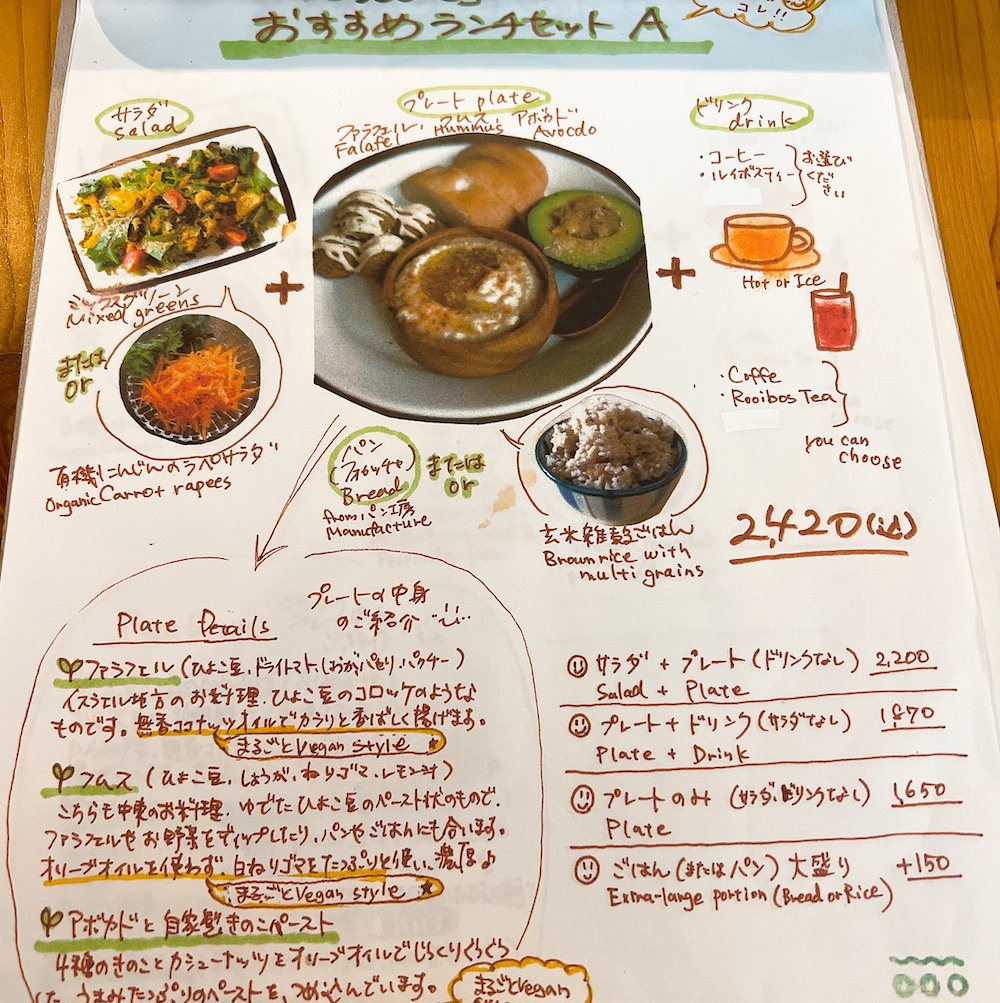 おすすめランチセット A
コレ!!
サラダ
salad
プレート plate
ファラフェル、フムス アボカド
Falafel Hummus Avocdo
ドリンク
drink
・コーヒー
・ルイボスティー
お選び
くだ
さい
Hot or Ice
ミックスグリーン
Mixed greens
または
or
有機にんじんのラペサラダ
Organic Carrot rapees
パン
(フォカッチャ)
Bread
from パン工房
Manufacture
または
or
玄米雑穀ごはん
Brown rice with
multi grains
・Coffe
・Rooibos Tea
you can
choose
2,420(込)
Plate Details
プレートの中身
のご紹介
ファラフェル (ひよこ豆、ドライトマト、しょうが、パセリ、パクチー)
イスラエル地方のお料理、ひよこ豆のコロッケのような
ものです。無香ココナッツオイルでカラリと香ばしく揚げます。
まるごとVegan style
フムス (ひよこ豆、しょうが、ねりゴマ、レモン汁)
こちらも中東のお料理、ゆでたひよこ豆のペースト状のもので、
ファラフェルやお野菜をディップしたり、パンやごはんにも合います。
オリーブオイルを使わず、白ねりゴマをたっぷりと使い、濃厚♪
まるごとVegan style
アボカドと自家製きのこペースト
4種のきのことカシューナッツをオリーブオイルでじっくりぐらぐら
うまみたっぷりのペーストを、つめ込んでいます。
まるごとVegan
サラダ + プレート (ドリンクなし) 2,200
Salad + Plate
プレート + ドリンク (サラダなし) 1870
Plate + Drink
プレートのみ (サラダ、ドリンクなし) 1,650
Plate
ごはん (またはパン) 大盛り +150
Extra-large portion (Bread or Rice)